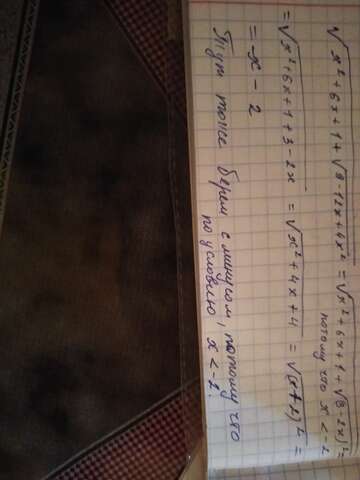 √x²+6x+1+√9-12x+4x² = √x²+6x+1+√(3-2x)² =
потому что x < -2
= √x²+6x+1+3-2x = √x²+4x+4 = √(x+2)² =
= -x-2
Тут тоже берем с минусом, потому что
по условию x < -2.